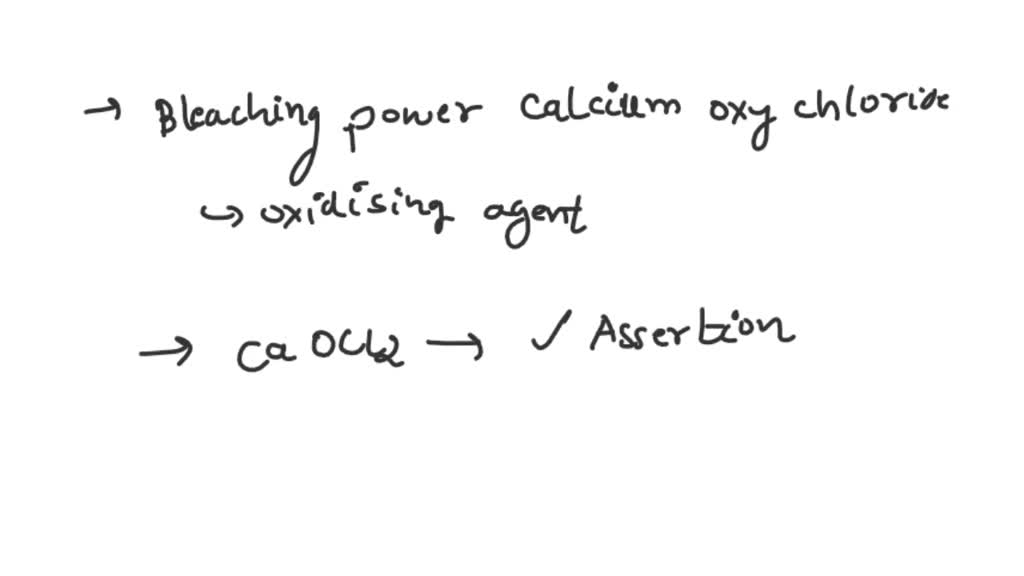 → Bleaching power calcium oxy chloride
↪ oxidising agent
→ CaOCl2 → ✓ Assertion